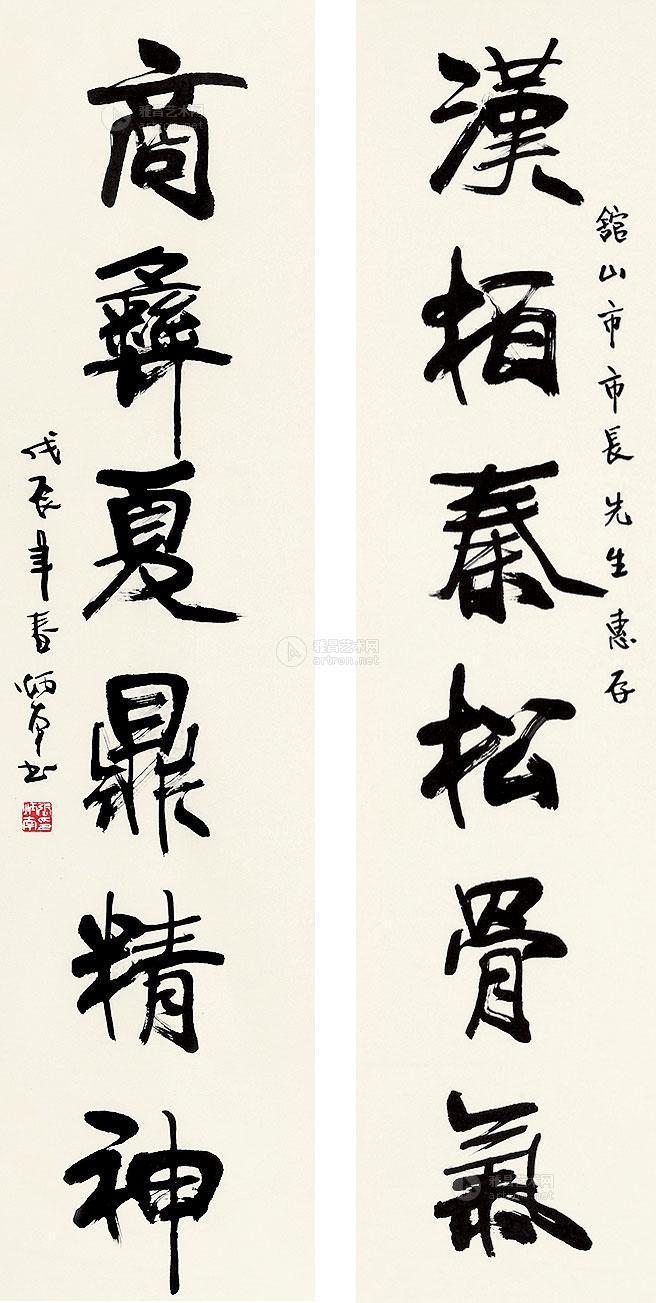 舘山市市長先生惠存
漢柏秦松骨氣
商彝夏鼎精神
戊辰年春炳南书
雅昌艺术网
artron.net